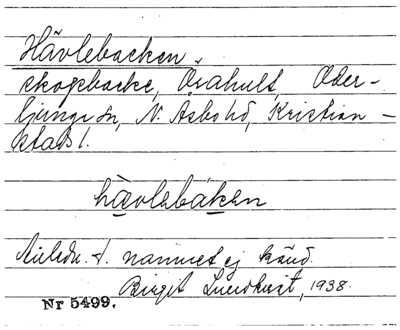 Hävlebacken
skogsbacke, Örahult, Oder-
ljunga sn, N. Åsbo hd, Kristian-
stads l.
hävlebaken
Anledn. t. namnet ej känd.
Birgit Lundkvist, 1938.
Nr 5499.